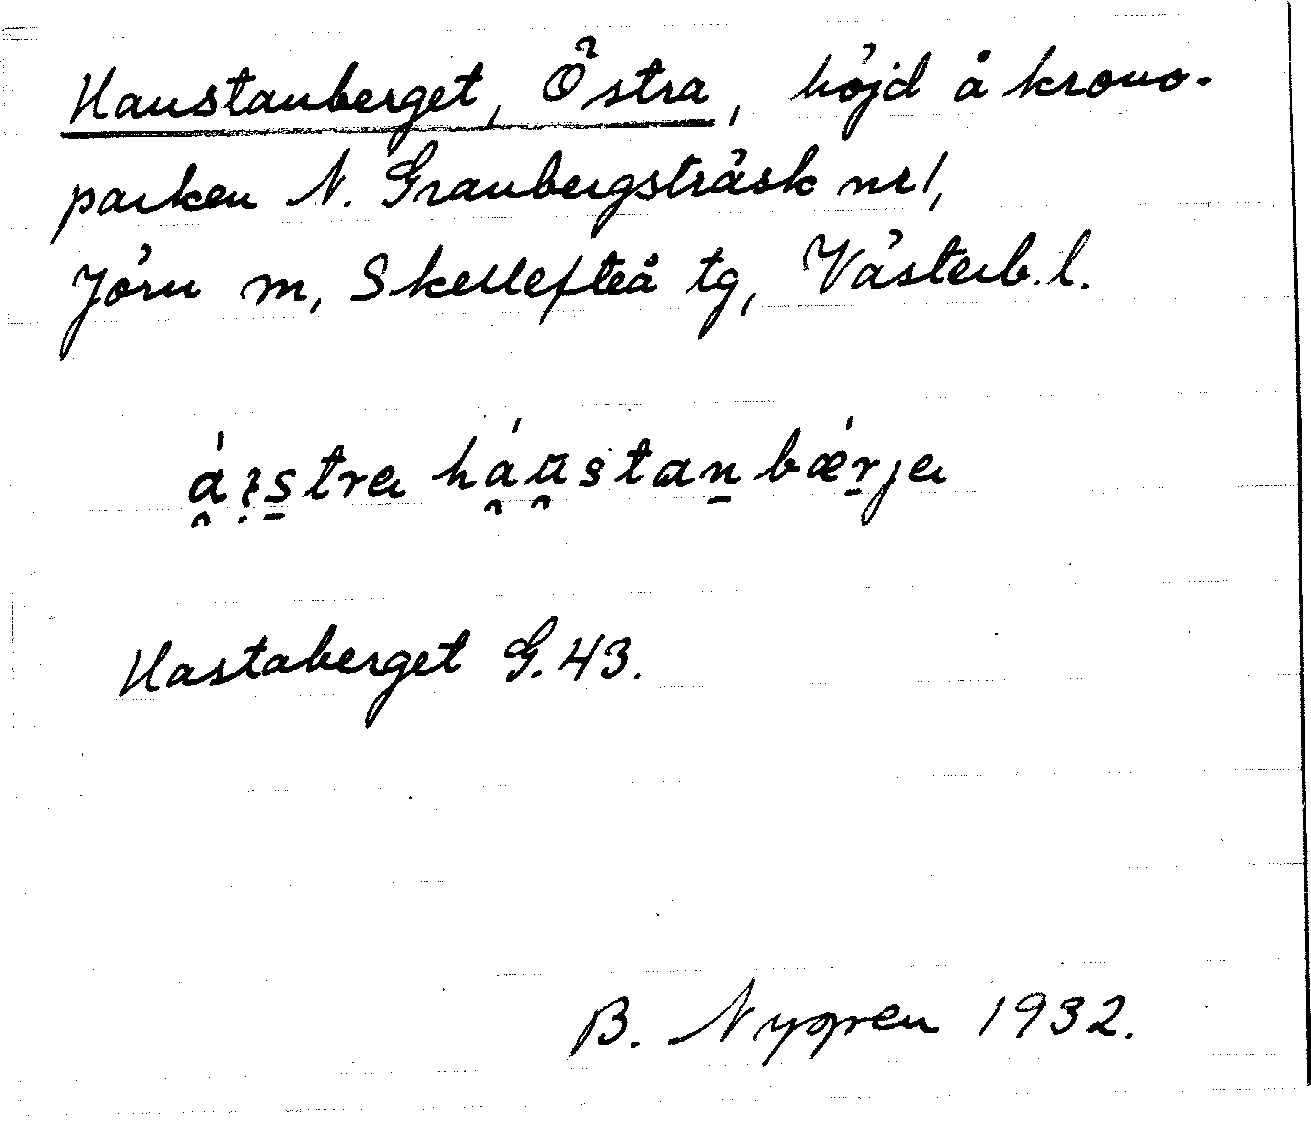 Haustanberget, Östra, höjd å krono-
parken N. Granbergsträsk nr 1,
Jörn m, Skellefteå tg, Västerb. l.
á̯ı̣s̲tra há̯u̯stan̲bǽr̲ja
Hastaberget G. 43.
B. Nygren 1932.